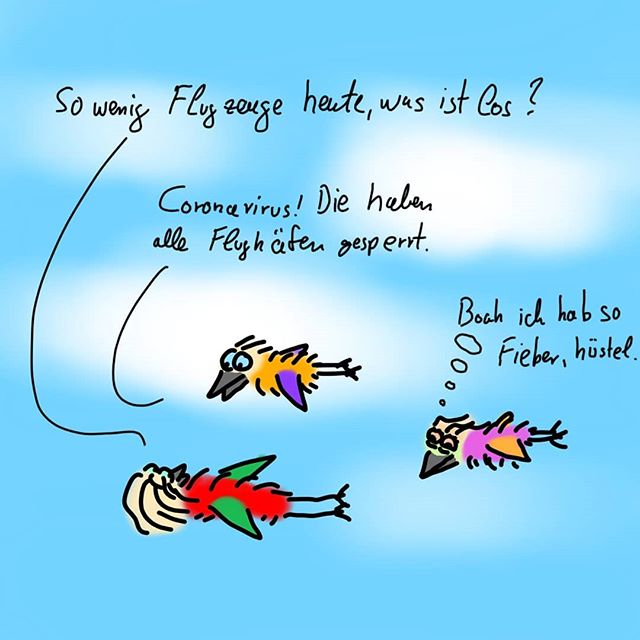 So wenig Flugzeuge heute, was ist los?
Coronavirus! Die haben
alle Flughäfen gesperrt.
Boah ich hab so
Fieber, hüstel.